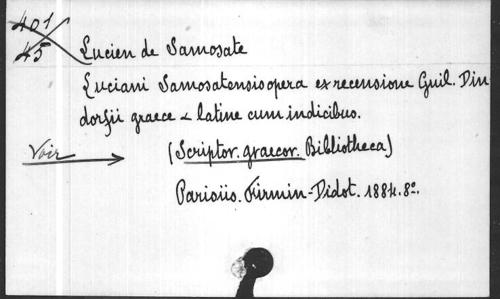 401
45
Lucien de Samosate
Luciani Samosatensis opera ex recensione Guil. Din
dorfii graece & latine cum indicibus.
Voir
(Scriptor. graecor. Bibliotheca)
Parisiis. Firmin-Didot. 1884. 8º.